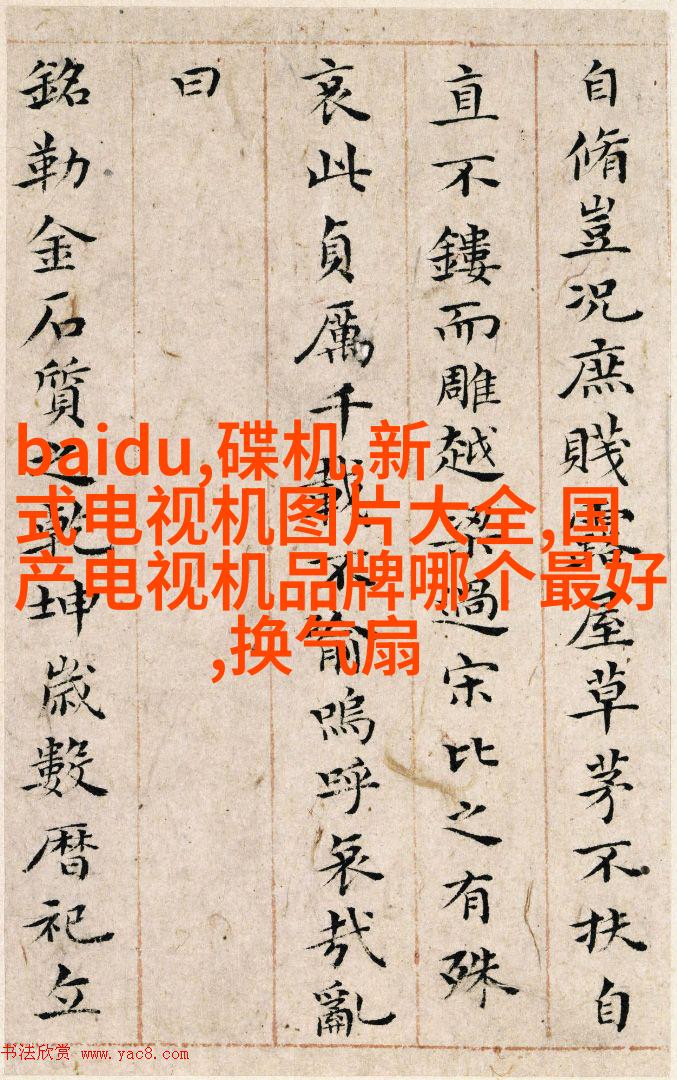 自脩豈況庶賤露屋草茅不扶自
直不鏤而雕越梁過宋比之有殊
哀此貞厲千載不渝嗚呼哀哉亂
曰
銘勒金石質之乾坤歲數曆祀立
baidu,碟机,新
式电视机图片大全,国
产电视机品牌哪个最好
,换气扇
书法欣赏 www.yac8.com